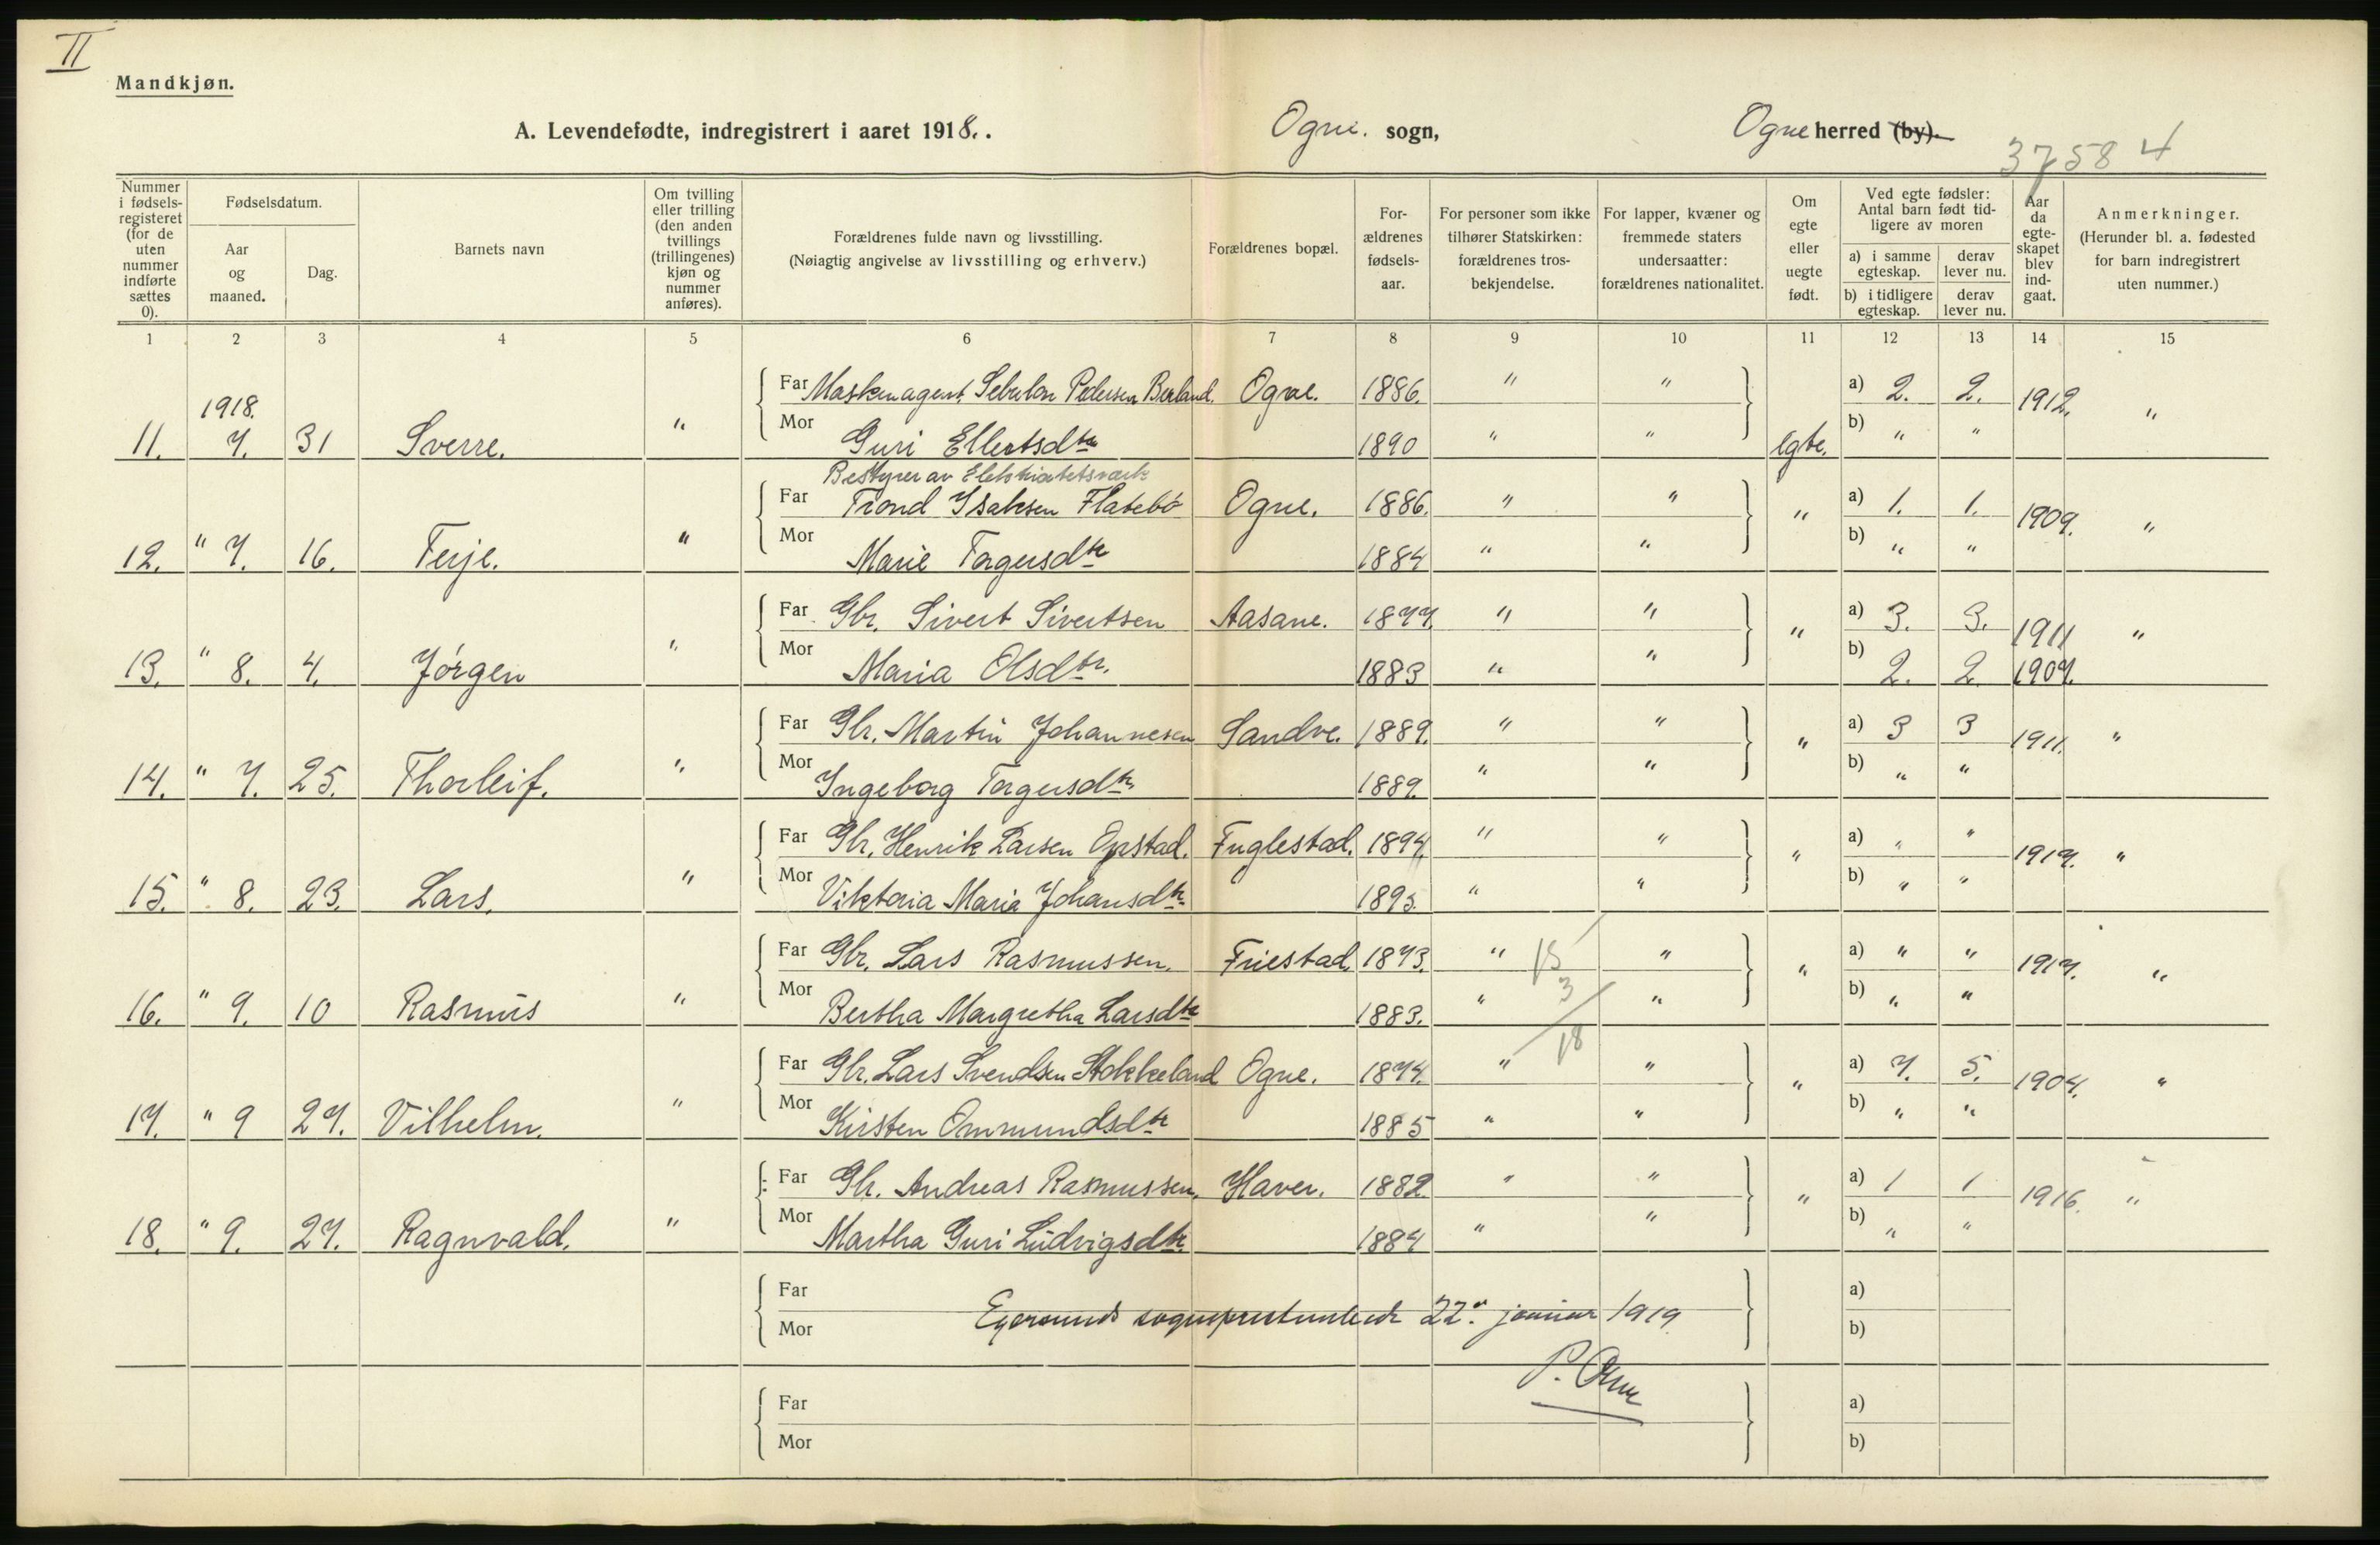 II
Mandkjøn.
A. Levendefødte, indregistrert i aaret 1918. .
Ogne. sogn,
Ogne herred (by).
37584
Nummer i fødsels-registeret (for de uten nummer indførte sættes 0).
Fødselsdatum.
Aar og maaned.
Dag.
Barnets navn
Om tvilling eller trilling (den anden tvillings (trillingenes) kjøn og nummer anføres).
Forældrenes fulde navn og livsstilling.
(Nøiagtig angivelse av livsstilling og erhverv.)
Forældrenes bopæl.
For-ældrenes fødsels-aar.
For personer som ikke tilhører Statskirken: forældrenes tros-bekjendelse.
For lapper, kvæner og fremmede staters undersaatter: forældrenes nationalitet.
Om egte eller uegte født.
Ved egte fødsler: Antal barn født tid-ligere av moren
a) i samme egteskap.
derav lever nu.
b) i tidligere egteskap.
derav lever nu.
Aar da egte-skapet blev ind-gaat.
Anmerkninger.
(Herunder bl. a. fødested for barn indregistrert uten nummer.)
1 2 3 4 5 6 7 8 9 10 11 12 13 14 15
Far Maskinagent Sebulon Pedersen Berland. Ogne. 1886. " " a) 2. 2. 1912. "
1918.
11. 7. 31 Sverre. " Mor Guri Ellertsdtr 1890 " " egte. b) " "
Bestyrer av Elektricitetsverk
Far Trond Isaksen Flatebø Ogne. 1886. " " " a) 1. 1. 1909. "
12. " 7. 16. Terje. " Mor Marie Torgersdtr 1884 " " b) " "
Far Gbr. Sivert Sivertsen Aasane. 1877. " " " a) 3. 3. 1911 "
13. " 8. 4. Jørgen " Mor Maria Olsdtr. 1883 " " b) 2. 2 1907.
Far Gbr. Martin Johannesen Sandve. 1889. " " " a) 3 3 1911. "
14. " 7. 25. Thorleif. " Mor Ingeborg Torgersdtr. 1889. " " b) " "
Far Gbr. Henrik Larsen Opstad. Fuglestad. 1894. " " " a) " " 1917. "
15. " 8. 23. Lars. " Mor Viktoria Maria Johansdtr. 1895. " " b) " "
Far Gbr. Lars Rasmussen. Friestad. 1873. " 15 " " a) " " 1917. "
3
16. " 9. 10 Rasmus " Mor Bertha Margretha Larsdtr 1883. " " b) " "
18
Far Gbr. Lars Svendsen Stokkeland Ogne. 1874. " " " a) 7. 5. 1904. "
17. " 9 27. Vilhelm. " Mor Kirsten Ommundsdtr 1885 " " b) " "
Far Gbr. Andreas Rasmussen. Haver. 1882. " " " a) 1 1 1916. "
18. " 9. 27. Ragnvald. " Mor Martha Guri Ludvigsdtr. 1884 " " b) " "
Far a)
Egersunds sogneprestembede 22. januar 1919
Mor b)
Far a)
Mor b)